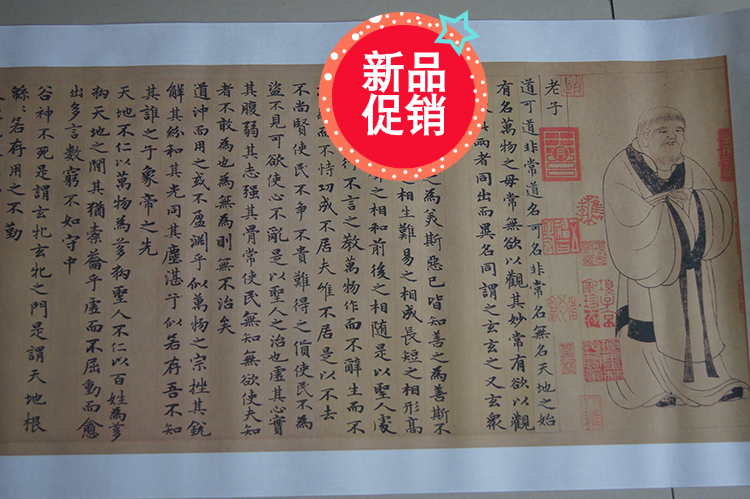 新品
促销
老子
道可道非常道名可名非常名無名天地之始
有名萬物之母常無欲以觀其妙常有欲以觀
兩者同出而異名同謂之玄玄之又玄衆
之為美斯惡已皆知善之為善斯不
之相生難易之相成長短之相形高
之相和前後之相随是以聖人處
行不言之教萬物作而不辭生而不
而不恃功成不居夫惟不居是以不去
不尚賢使民不爭不貴難得之貨使民不為
盜不見可欲使心不亂是以聖人之治也虛其心實
其腹弱其志强其骨常使民無知無欲使夫知
者不敢為也為無為則無不治矣
道沖而用之或不盈渊乎似萬物之宗挫其銳
解其紛和其光同其塵湛兮似若存吾不知
其誰之子象帝之先
天地不仁以萬物為芻狗聖人不仁以百姓為芻
狗天地之間其猶橐籥乎虛而不屈動而愈
出多言數窮不如守中
谷神不死是謂玄牝玄牝之門是謂天地根
緜〻若存用之不勤